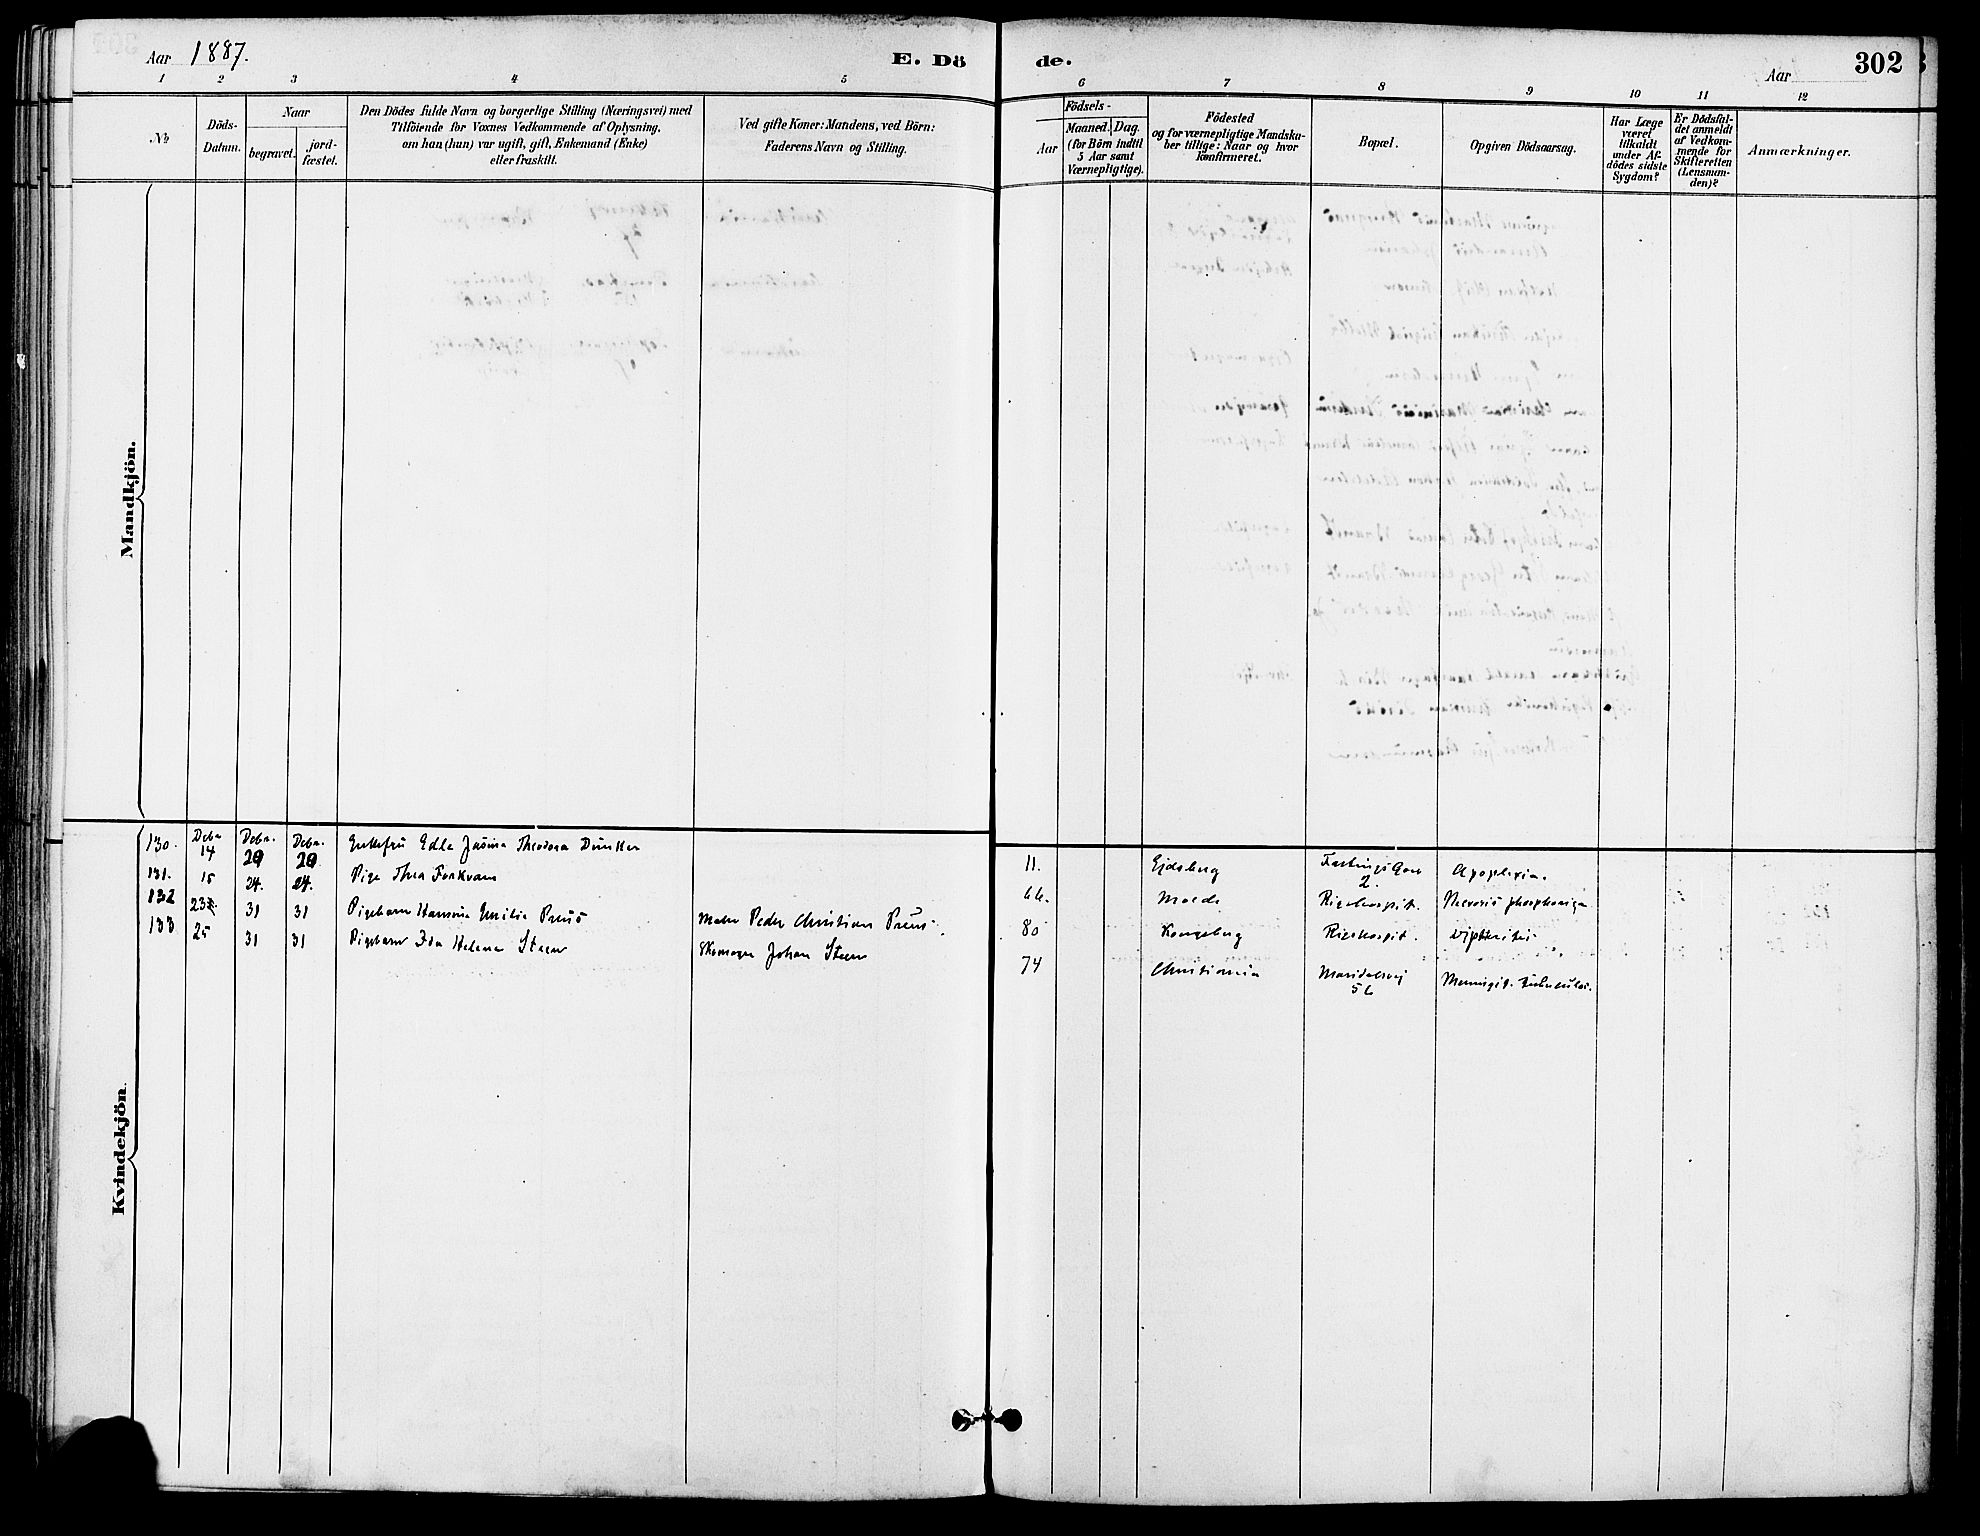 Aar 1887.
E. Dö
de.
Aar
302
1 2 3 4 5
6 7 8 9 10 11 12
No
Döds-
Datum.
Naar
begravet.
jord-
fæstet.
Den Dödes fulde Navn og borgerlige Stilling (Næringsvei) med
Tilföiende for Voxnes Vedkommende af Oplysning,
om han (hun) var ugift, gift, Enkemand (Enke)
eller fraskilt.
Ved gifte Koner: Mandens, ved Börn:
Faderens Navn og Stilling.
Födsels-
Aar
Maaned.
Dag.
(for Börn indtil
5 Aar samt
Værnepligtige).
Födested
og for værnepligtige Mandska-
ber tillige: Naar og hvor
konfirmeret.
Bopæl.
Opgiven Dödsaarsag.
Har Læge
været
tilkaldt
under Af-
dödes sidste
Sygdom?
Er Dödsfal-
det anmeldt
af Vedkom-
mende for
Skifteretten
(Lensman-
den)?
Anmærkninger.
Mandkjön.
Kvindekjön.
130. Debr 14 Debr. 20 Debr. 20 Enkefru Edle Jasine Theodora Dunker 11. Ejdsberg 2. Apoplexia.
131. 15 24. 24. Pige Thea Forkvam 66. Molde Rigshospit. Necrosis phosphorica
132 23 31 31 Pigebarn Hansine Emilie Preus Maler Peder Christian Preus. 80 Kongsberg Rigshospit. Diphtheritis
133 25 31 31 Pigebarn Ida Helene Steen Skomager Johan Steen 74 Christiania Maridalsvej 56 Meningit. tuberculos.